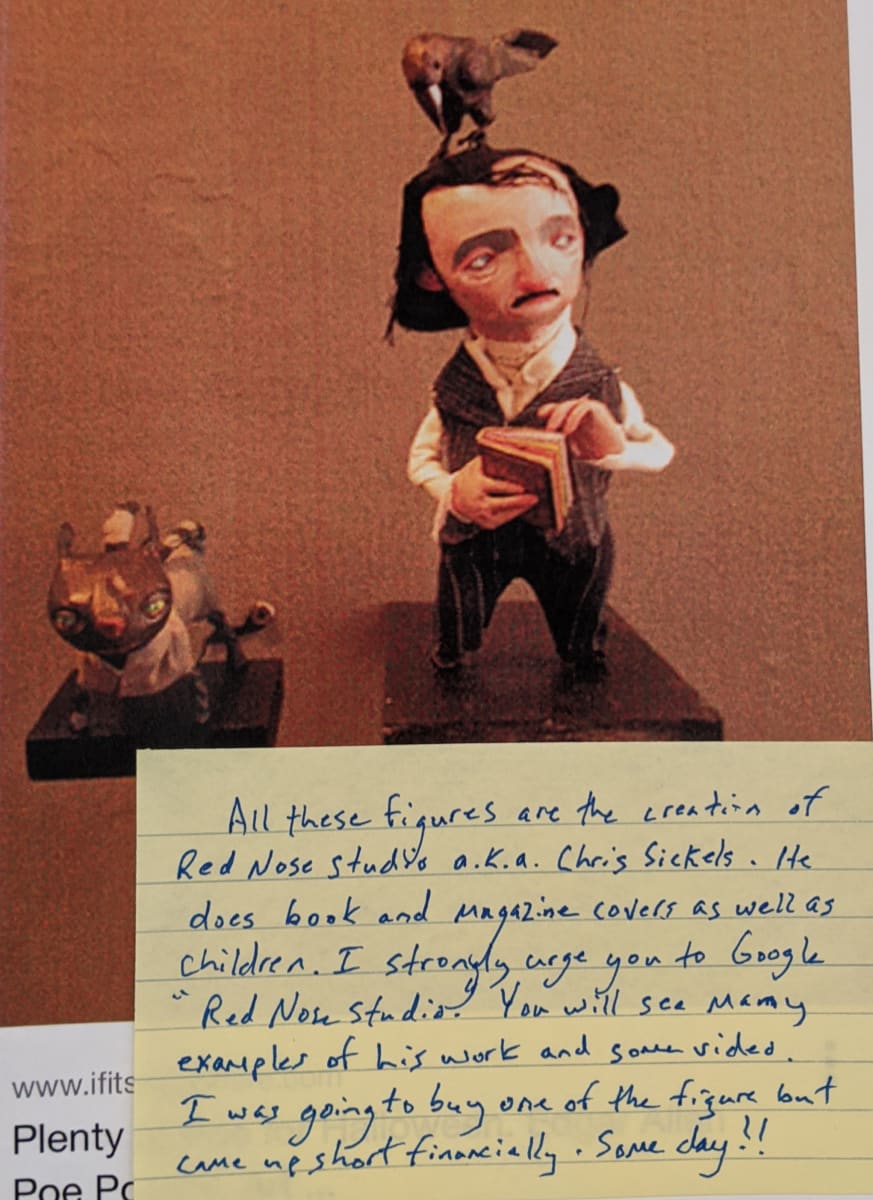 All these figures are the creation of
Red Nose Studio a.k.a. Chris Sickels. He
does book and magazine covers as well as
children. I strongly urge you to Google
"Red Nose Studio." You will see many
examples of his work and some video.
I was going to buy one of the figure but
came up short financially. Some day!!
www.ifits
Plenty
Poe Po